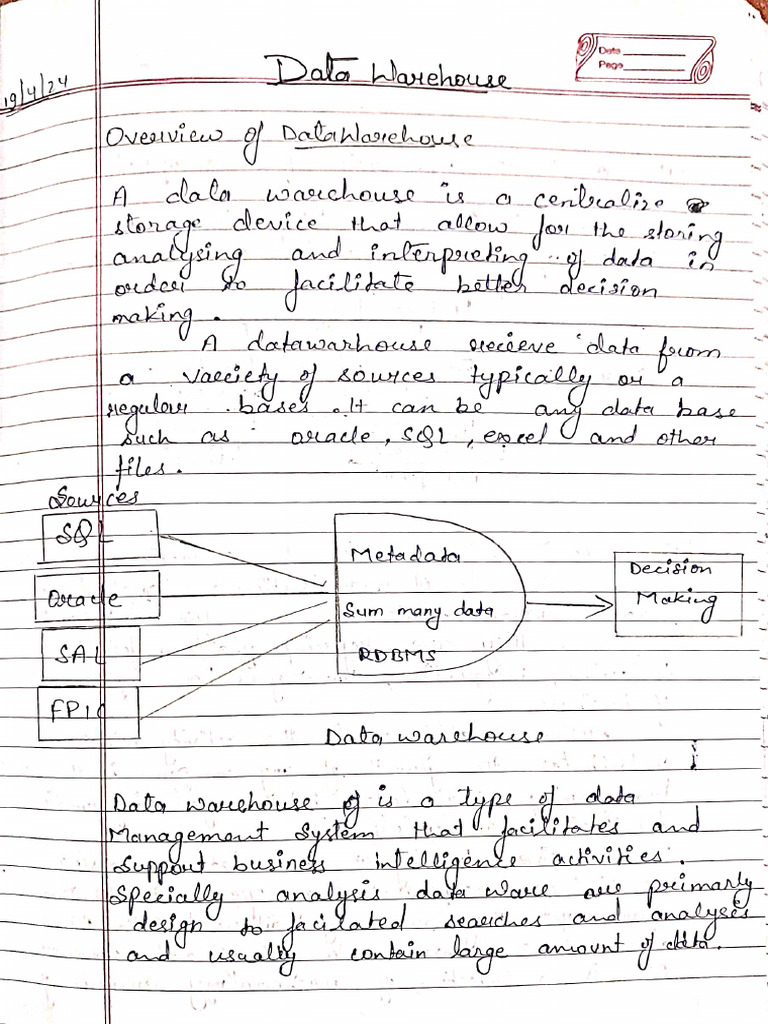 Date
Page
19/4/24
Data Warehouse
Overview of DataWarehouse
A data warehouse is a centralize
storage device that allow for the storing
analysing and interpreting of data in
order to facilitate better decision
making.
A datawarhouse recieve data from
a varciety of sources typically on a
regular bases. It can be any data base
such as oracle, SQL, excel and other
files.
Sources
SQL
Oracle
SAL
FPIC
Metadata
Sum many data
RDBMS
Decision
Making
Data warehouse
Data warehouse is a type of data
Management System that facilitates and
Support business intelligence activities.
Specially analysis data ware are primarly
design to facilated searches and analyses
and usually contain large amount of data.